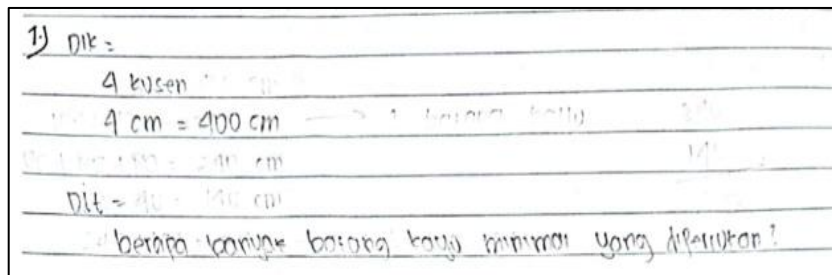 1.) Dik =
4 kusen
4 cm = 400 cm
Dit =
berapa banyak batang kayu minimal yang diperlukan?